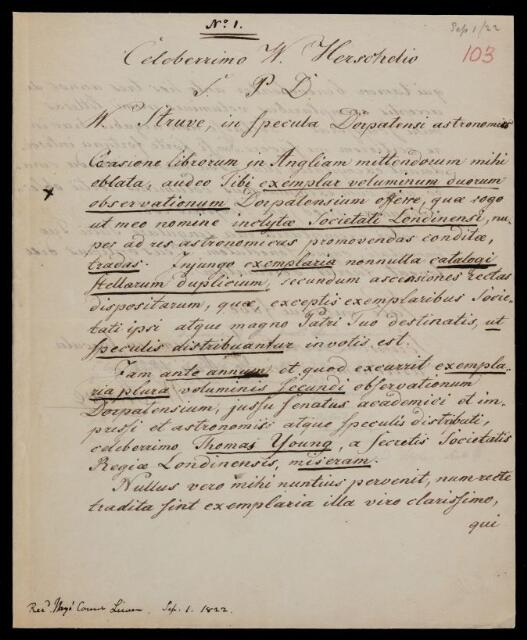 No 1.
Sep 1/22
103
Celeberrimo W. Herschelio
S. P. D.
W. Struve, in specula Dorpatensi astronomus
Occasione librorum in Angliam mittendorum mihi
oblata, audeo Tibi exemplar voluminum duorum
x
observationum Dorpatensium offerre, quae rogo
ut meo nomine inclytae Societati Londinensi, nu-
per ad res astronomicas promovendas conditae,
tradas. Injungo exemplaria nonnulla catalogi
stellarum duplicium, secundum ascensiones rectas
dispositarum, quae, exceptis exemplaribus Socie-
tati ipsi atque magno Patri Tuo destinatis, ut
speculis distribuantur in votis est.
Jam ante annum et quod excurrit exempla-
ria plura voluminis secundi observationum
Dorpatensium, jussu senatus academici et im-
pressi et astronomis atque speculis distributi,
celeberrimo Thomas Young, a secretis Societatis
Regiae Londinensis, miseram.
Nullus vero mihi nuntius pervenit, num recte
tradita sint exemplaria illa viro clarissimo,
qui
Sep. 1. 1822.